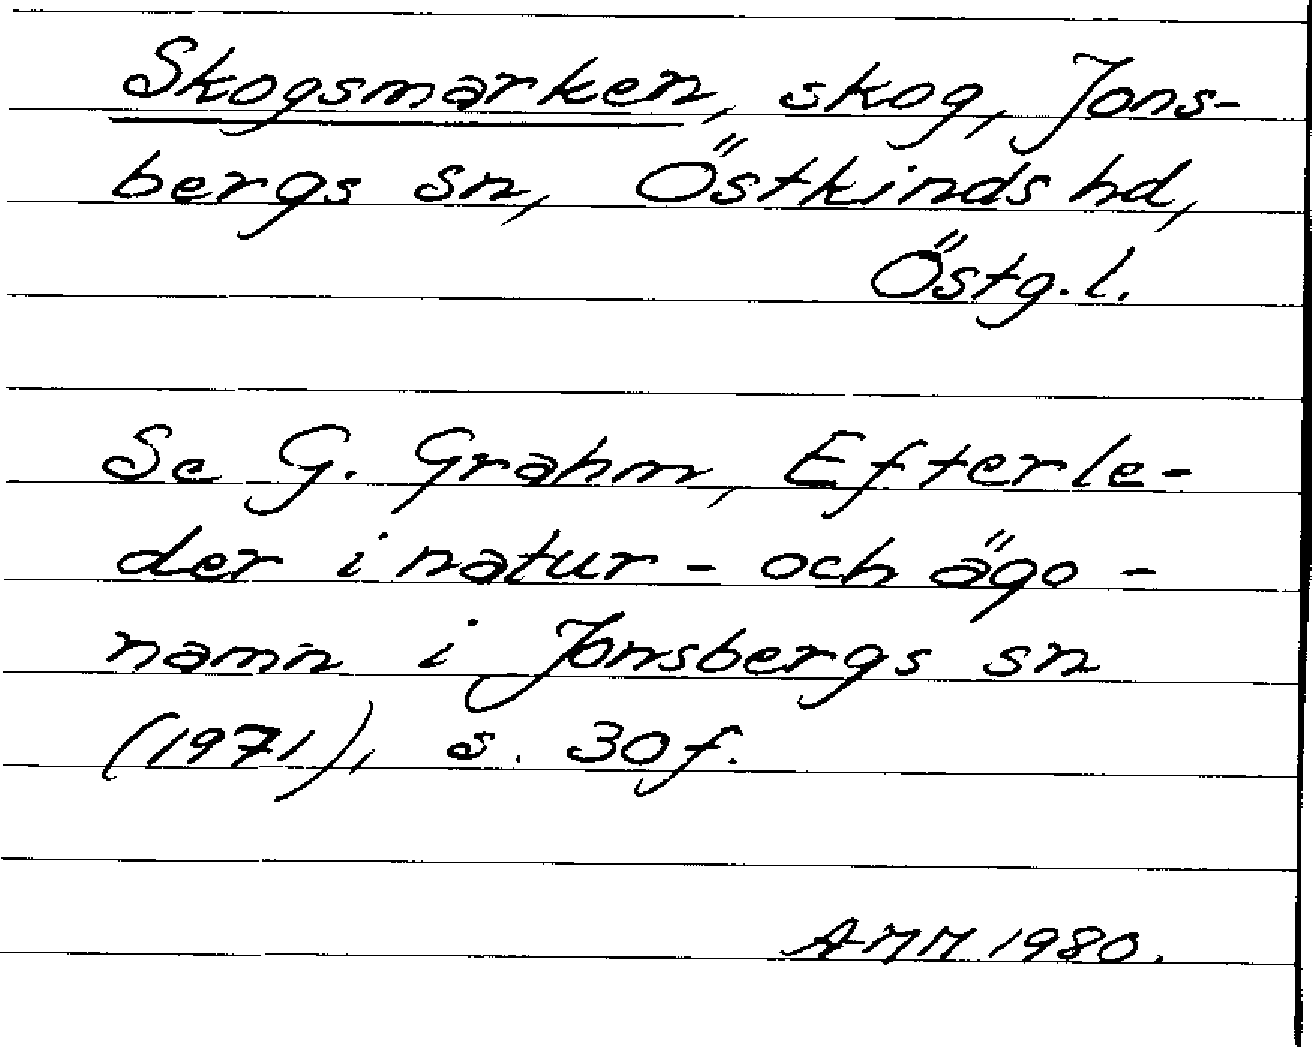 Skogsmarken, skog, Jons-
bergs sn, Östkinds hd,
Östg.l.
Se G. Grahm, Efterle-
der i natur- och ägo-
namn i Jonsbergs sn
(1971), s. 30f.
AMM 1980.